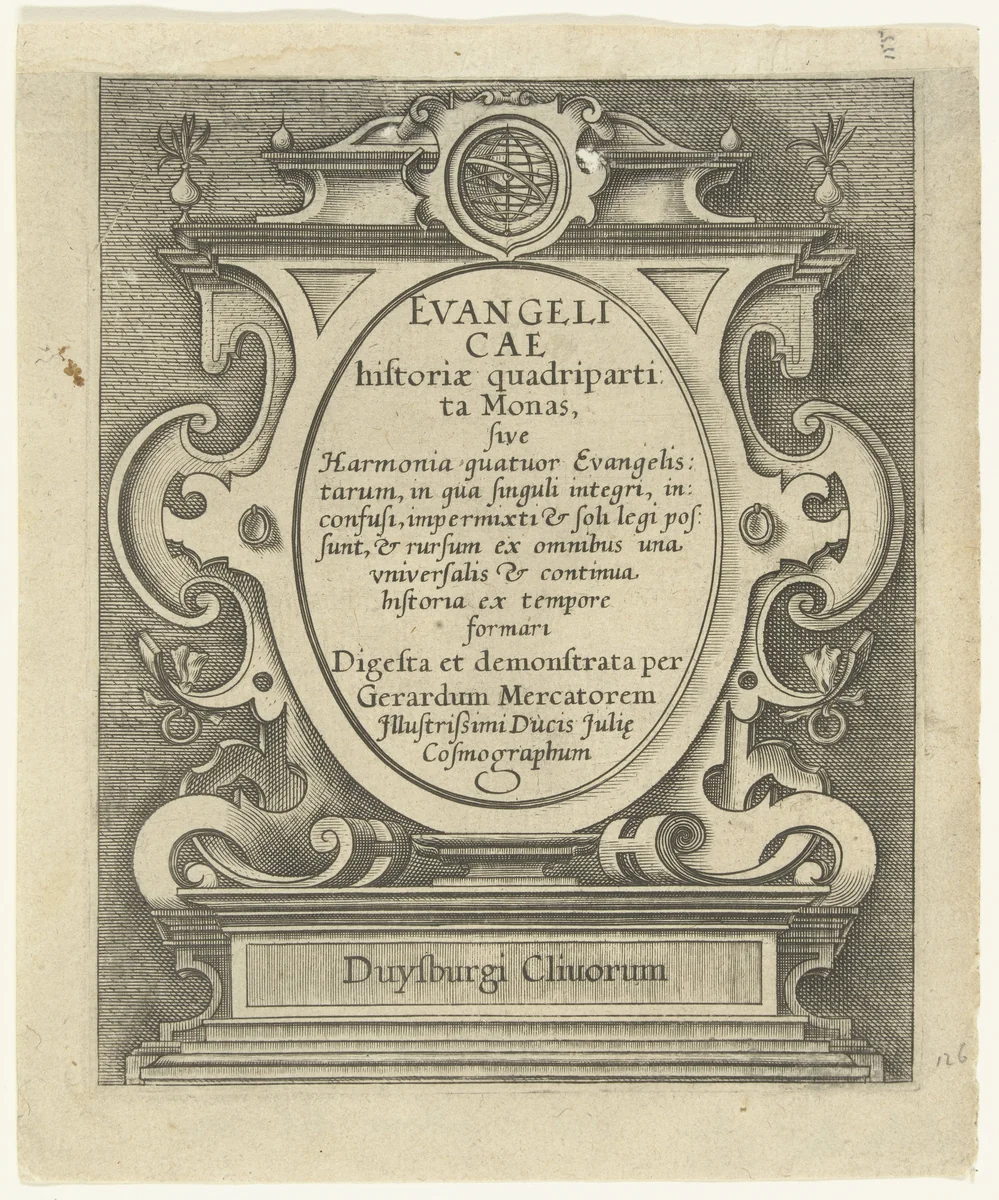 155
EVANGELI
CAE
hiſtoriæ quadriparti:
ta Monas,
ſive
Harmonia quatuor Evangelis:
tarum, in qua ſinguli integri, in:
confuſi, impermixti & ſoli legi poſ:
ſunt, & rurſum ex omnibus una
vniverſalis & continua
hiſtoria ex tempore
formari
Digeſta et demonſtrata per
Gerardum Mercatorem
Jlluſtriſsimi Ducis Julię
Coſmographum
Duyſburgi Cliuorum
126